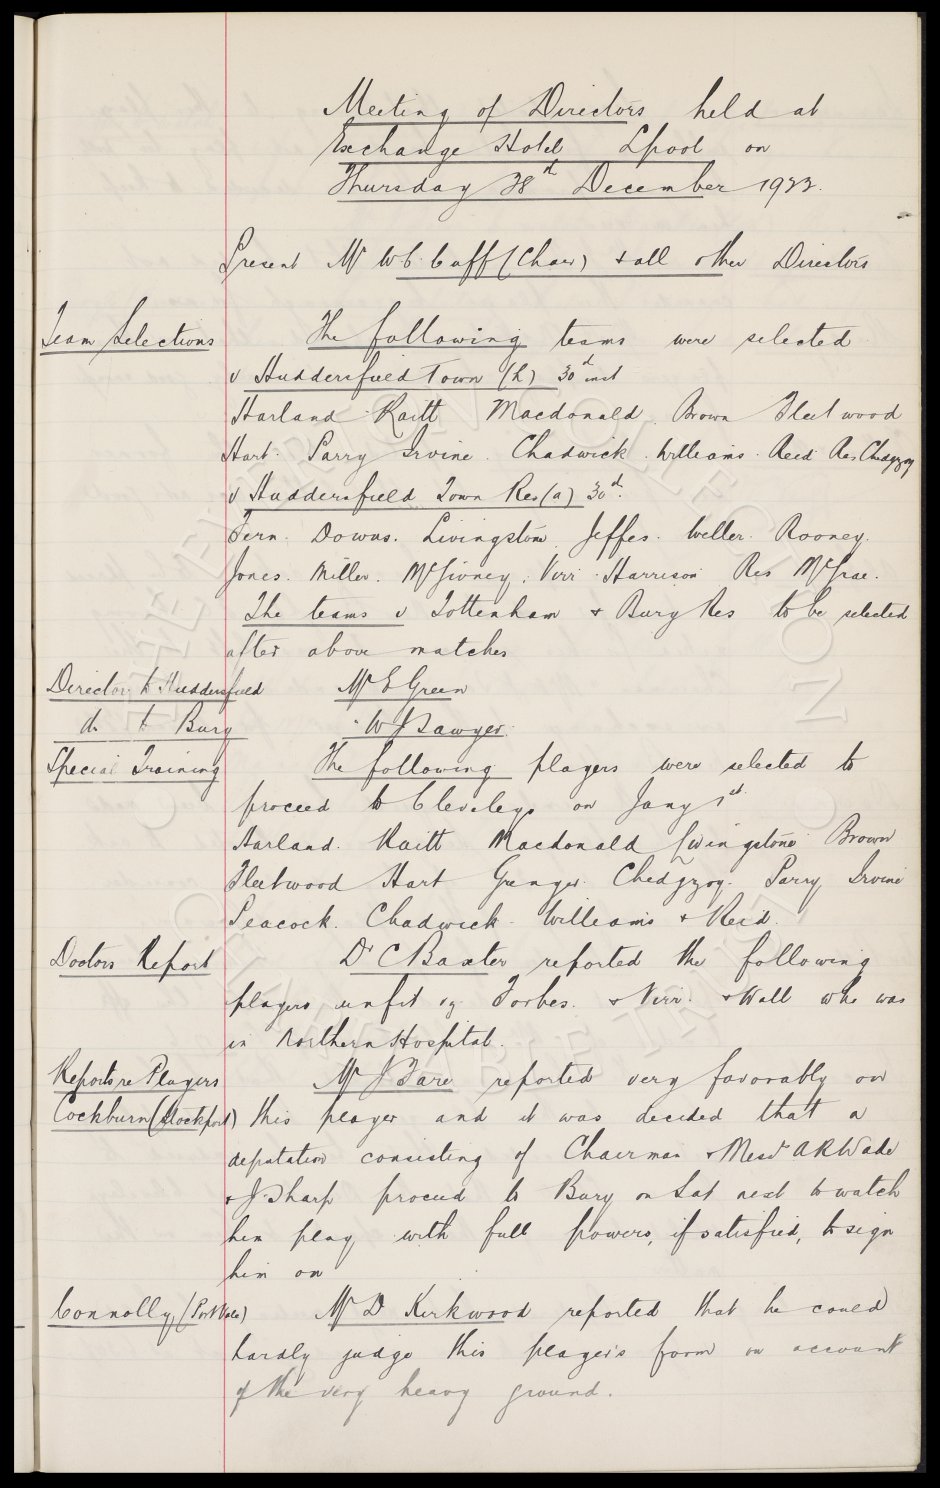 Meeting of Directors held at
Exchange Hotel Lpool on
Thursday 28th December 1922.
Present Mr W C Cuff (Chair) & all other Directors
Team Selections The following teams were selected
v Huddersfield Town (h) 30d inst
Harland Raitt Macdonald Brown Fleetwood
Hart. Parry Irvine. Chadwick. Williams. Reid Res Chedgzoy
v Huddersfield Town Res (a) 30d.
Fern. Downs. Livingstone Jeffes. Weller. Rooney.
Jones. Miller. McGivney. Virr. Harrison Res McGrae.
The teams v Tottenham & Bury Res to be selected
after above matches
Director to Huddersfield Mr E Green
do to Bury " W J Sawyer.
Special Training The following players were selected to
proceed to Cleveleys on Jany 1st
Harland. Raitt Macdonald Livingstone Brown
Fleetwood Hart Grenyer. Chedgzoy. Parry Irvine
Peacock. Chadwick. Williams & Reid.
Doctors Report Dr C Baxter reported the following
players unfit eg Forbes. & Virr. & Wall who was
in Northern Hospital.
Reports re Players Mr J Fare reported very favorably on
Cockburn (Stockport) this player and it was decided that a
deputation consisting of Chairman & Messrs A R Wade
& J Sharp proceed to Bury on Sat next to watch
him play with full powers, if satisfied, to sign
him on
Connolly, (Port Vale) Mr D Kirkwood reported that he could
hardly judge this player's form on account
of the very heavy ground.